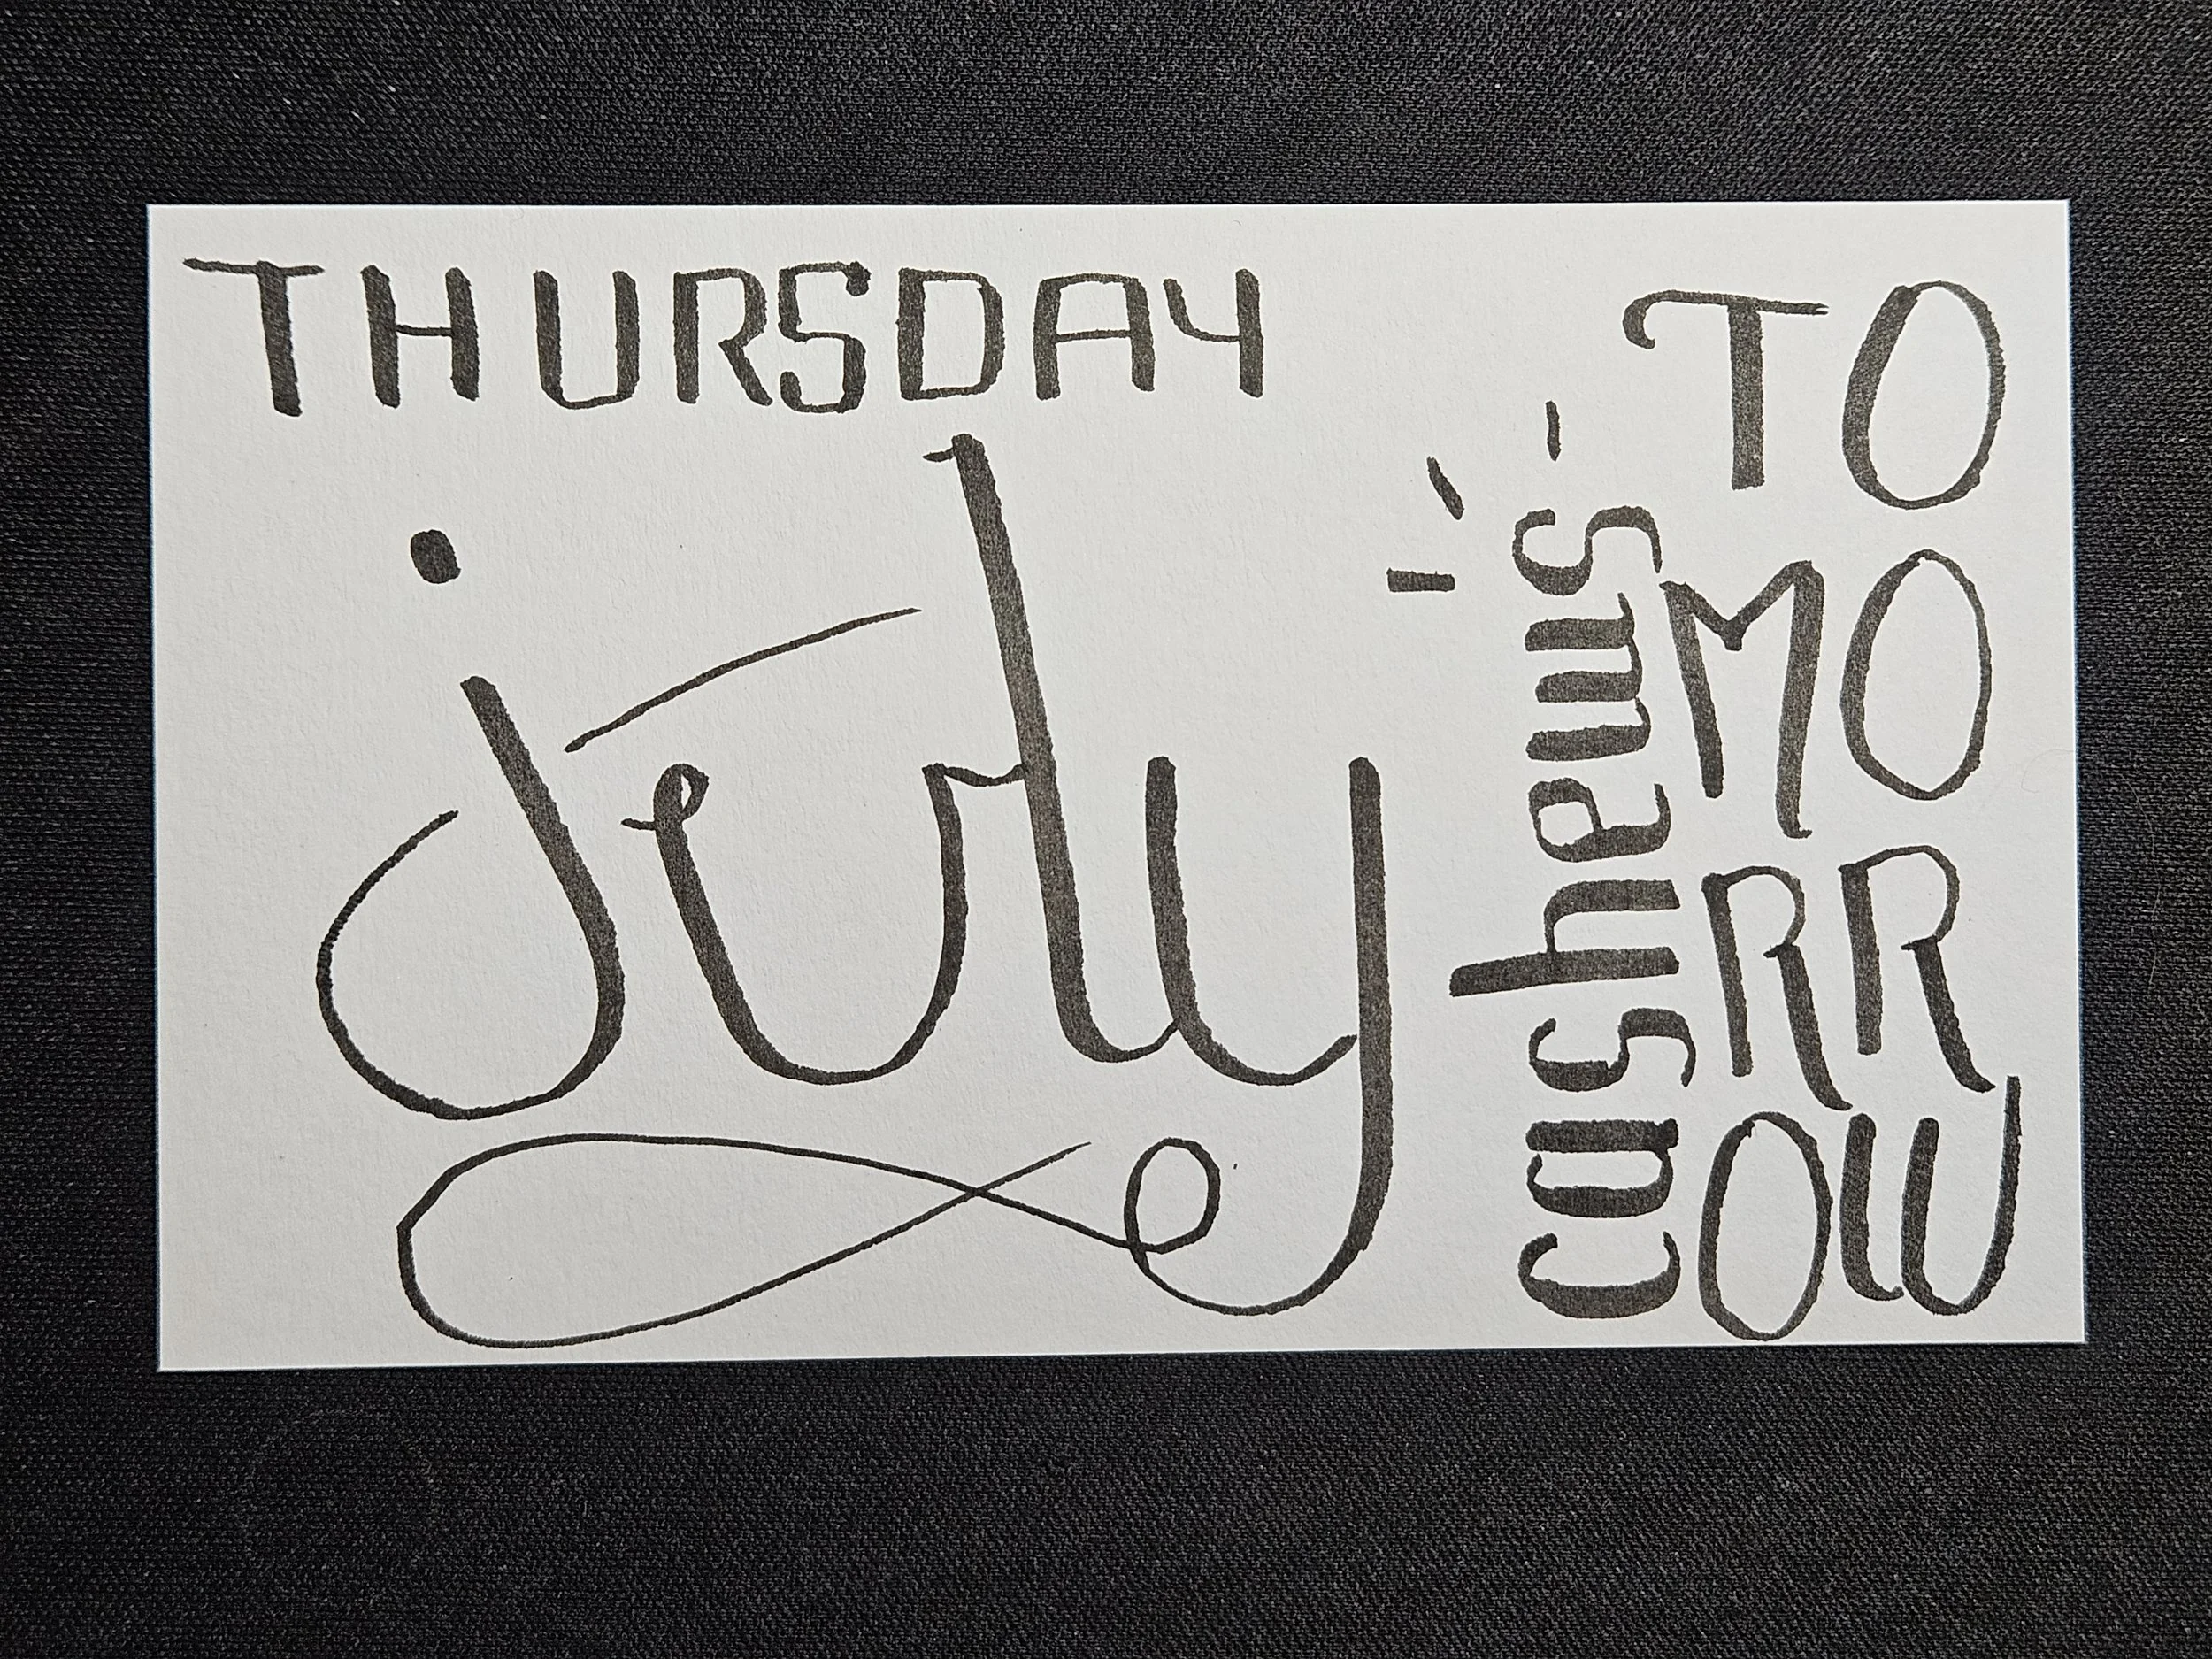 THURSDAY
july
cashews
TO
MO
RR
OW